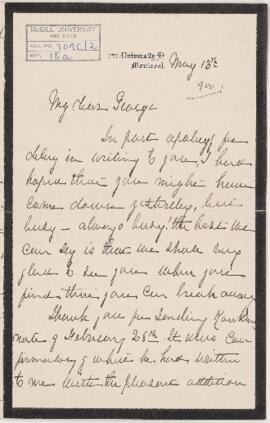 McGILL UNIVERSITY
ARCHIVES
ACC. NO. 909C/2
REF. 15a
University St.
Montreal.
May 13th
900
My dear George
In part apology for
delay in writing to you, I had
hoped that you might have
come down yesterday, but
busy - always busy! the best we
can say is that we shall be very
glad to see you when you
find that you can break away
Thank you for sending
note of February 28th. It was con
firmatory of what he had written
to me with the pleasant addition